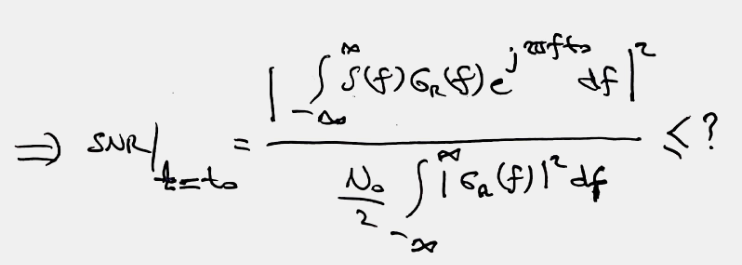 ⇒ SNR|_{t=t_0} = \frac{| \int_{-∞}^{∞} S(f) G_R(f) e^{j2πft_0} df |^2}{\frac{N_0}{2} \int_{-∞}^{∞} |G_R(f)|^2 df} ≤ ?